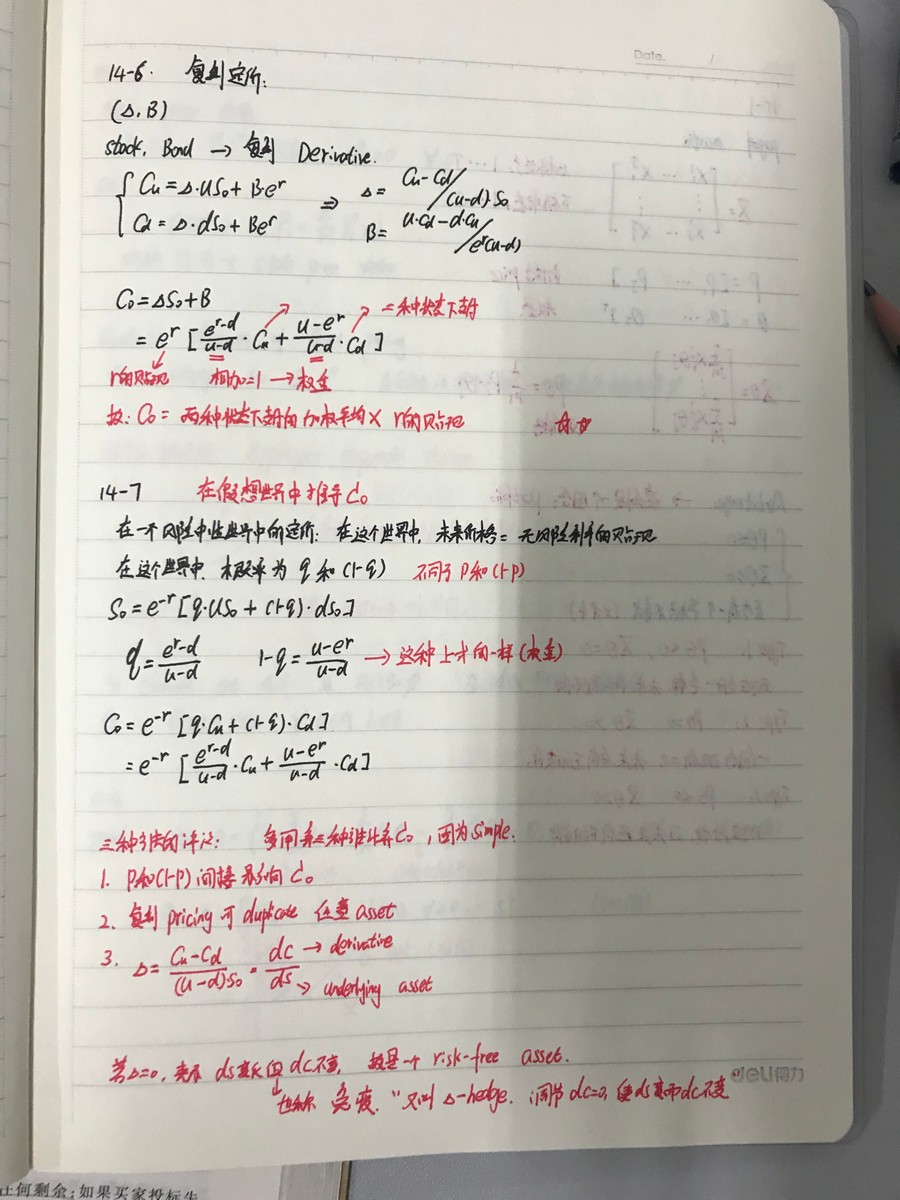 Date. /
14-6. 复制定价:
(Δ, B)
stock, Bond → 复制 Derivative.
Cu = Δ·uS₀ + B·eʳ ⇒ Δ = Cu-Cd/(u-d)·S₀
Cd = Δ·dS₀ + Beʳ B = u·Cd-d·Cu/eʳ(u-d)
C₀ = ΔS₀ + B 二种状态下支付
= eʳ [eʳ-d/u-d · Cu + u-eʳ/u-d · Cd]
r的贴现 相加=1 → 权重
故: C₀ = 两种状态下支付的加权平均 × r的贴现
14-7 在假想世界中推导C₀
在一个风险中性世界中的定价: 在这个世界中, 未来价格 = 无风险利率的贴现
在这个世界中, 概率为 q 和 (1-q) 不同于 P和(1-P)
S₀ = e⁻ʳ [q·uS₀ + (1-q)·dS₀]
q = eʳ-d/u-d 1-q = u-eʳ/u-d → 这种上才的一样(权重)
C₀ = e⁻ʳ [q·Cu + (1-q)·Cd]
= e⁻ʳ [eʳ-d/u-d · Cu + u-eʳ/u-d · Cd]
三种方法的评论: 多用第三种法计算C₀, 因为simple.
1. P和(1-P)间接影响C₀
2. 复制 pricing 可 duplicate 任意 asset
3. Δ = Cu-Cd/(u-d)·S₀ = dC/dS → derivative
→ underlying asset
若Δ=0, 表示 ds变化但dc不变, 故是一个 risk-free asset.
也称 免疫, "又叫 Δ-hedge. 调节dc=0, 使ds变而dc不变
deli得力
任何剩余;如果买家投标失